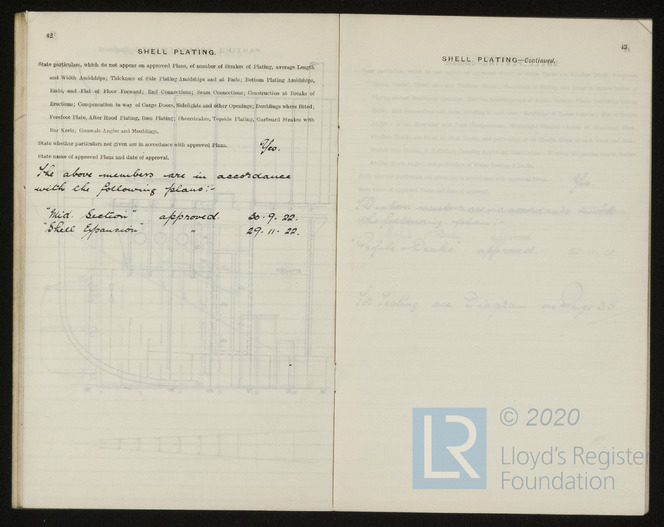 42
SHELL PLATING.
State particulars, which do not appear on approved Plans, of number of Strakes of Plating, average Length
and Width Amidships; Thickness of Side Plating Amidships and at Ends; Bottom Plating Amidships,
Ends, and Flat of Floor Forward; End Connections; Seam Connections; Construction at Breaks of
Erections; Compensation in way of Cargo Doors, Sidelights and other Openings; Doublings where fitted;
Forefoot Plate, After Hood Plating, Boss Plating; Sheerstrakes, Topside Plating, Garboard Strakes with
Bar Keels; Gunwale Angles and Mouldings.
State whether particulars not given are in accordance with approved Plans. Yes.
State name of approved Plans and date of approval.
The above members are in accordance
with the following plans:-
"Mid. Section" approved 30.9.22.
"Shell Expansion" " 29.11.22.
43
SHELL PLATING—Continued.
LR
© 2020
Lloyd's Register
Foundation